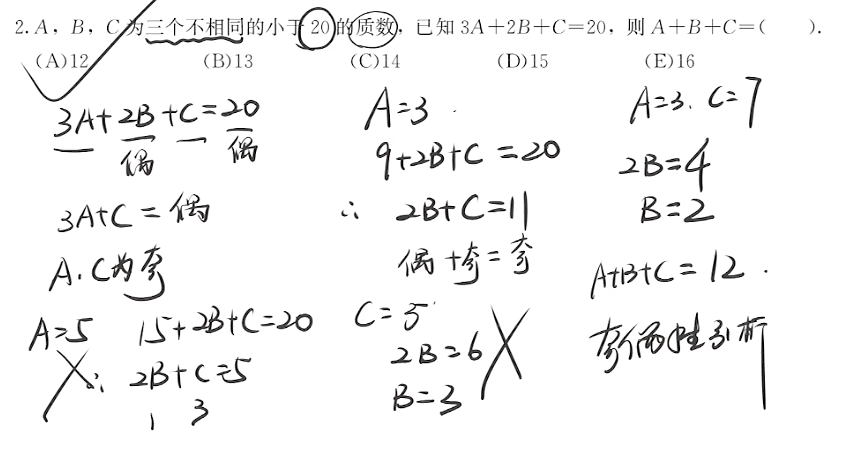 2. A，B，C 为三个不相同的小于 20 的质数，已知 3A＋2B＋C＝20，则 A＋B＋C＝(　　).
(A)12　(B)13　(C)14　(D)15　(E)16
3A+2B+C=20
偶 偶
3A+C=偶
A.C为奇
A=5 15+2B+C=20
∴ 2B+C=5
1 3
A=3
9+2B+C=20
∴ 2B+C=11
偶+奇=奇
C=5
2B=6
B=3
A=3. C=7
2B=4
B=2
A+B+C=12.
奇偶性分析